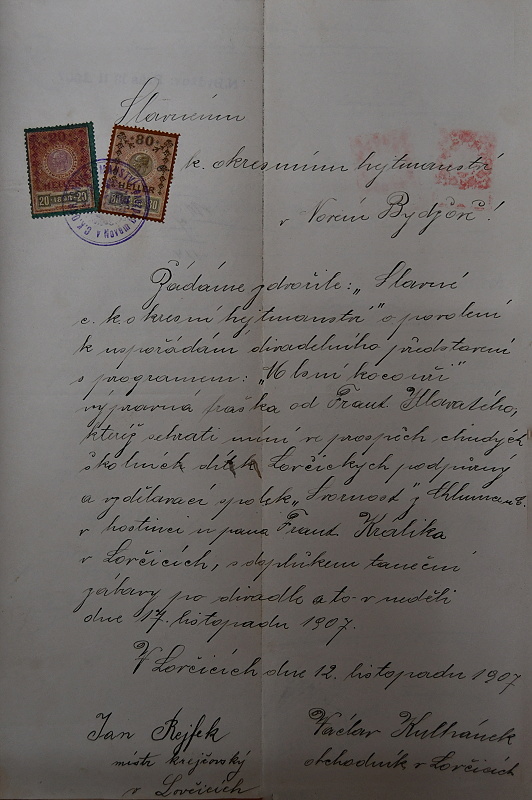 Slavnému
c. k. okresnímu hejtmanství
v Novém Bydžově!
Žádáme zdvořile: „Slavné
c. k. okresní hejtmanství" o povolení
k uspořádání divadelního představení
s programem: „Mlsní kocouři"
výpravná fraška od Frant. Hlavatého,
kteréž sehrati míní ve prospěch chudých
školních dítek Lovčických podpůrný
a vzdělávací spolek „Svornost" z Chlumce n. C.
v hostinci u pana Frant. Králíka
v Lovčicích, s doplňkem taneční
zábavy po divadle a to v neděli
dne 17. listopadu 1907.
V Lovčicích dne 12. listopadu 1907
Jan Rejfek
mistr krejčovský
v Lovčicích
Václav Kulhánek
obchodník v Lovčicích
80
HELLER
20 20
80
HELLER